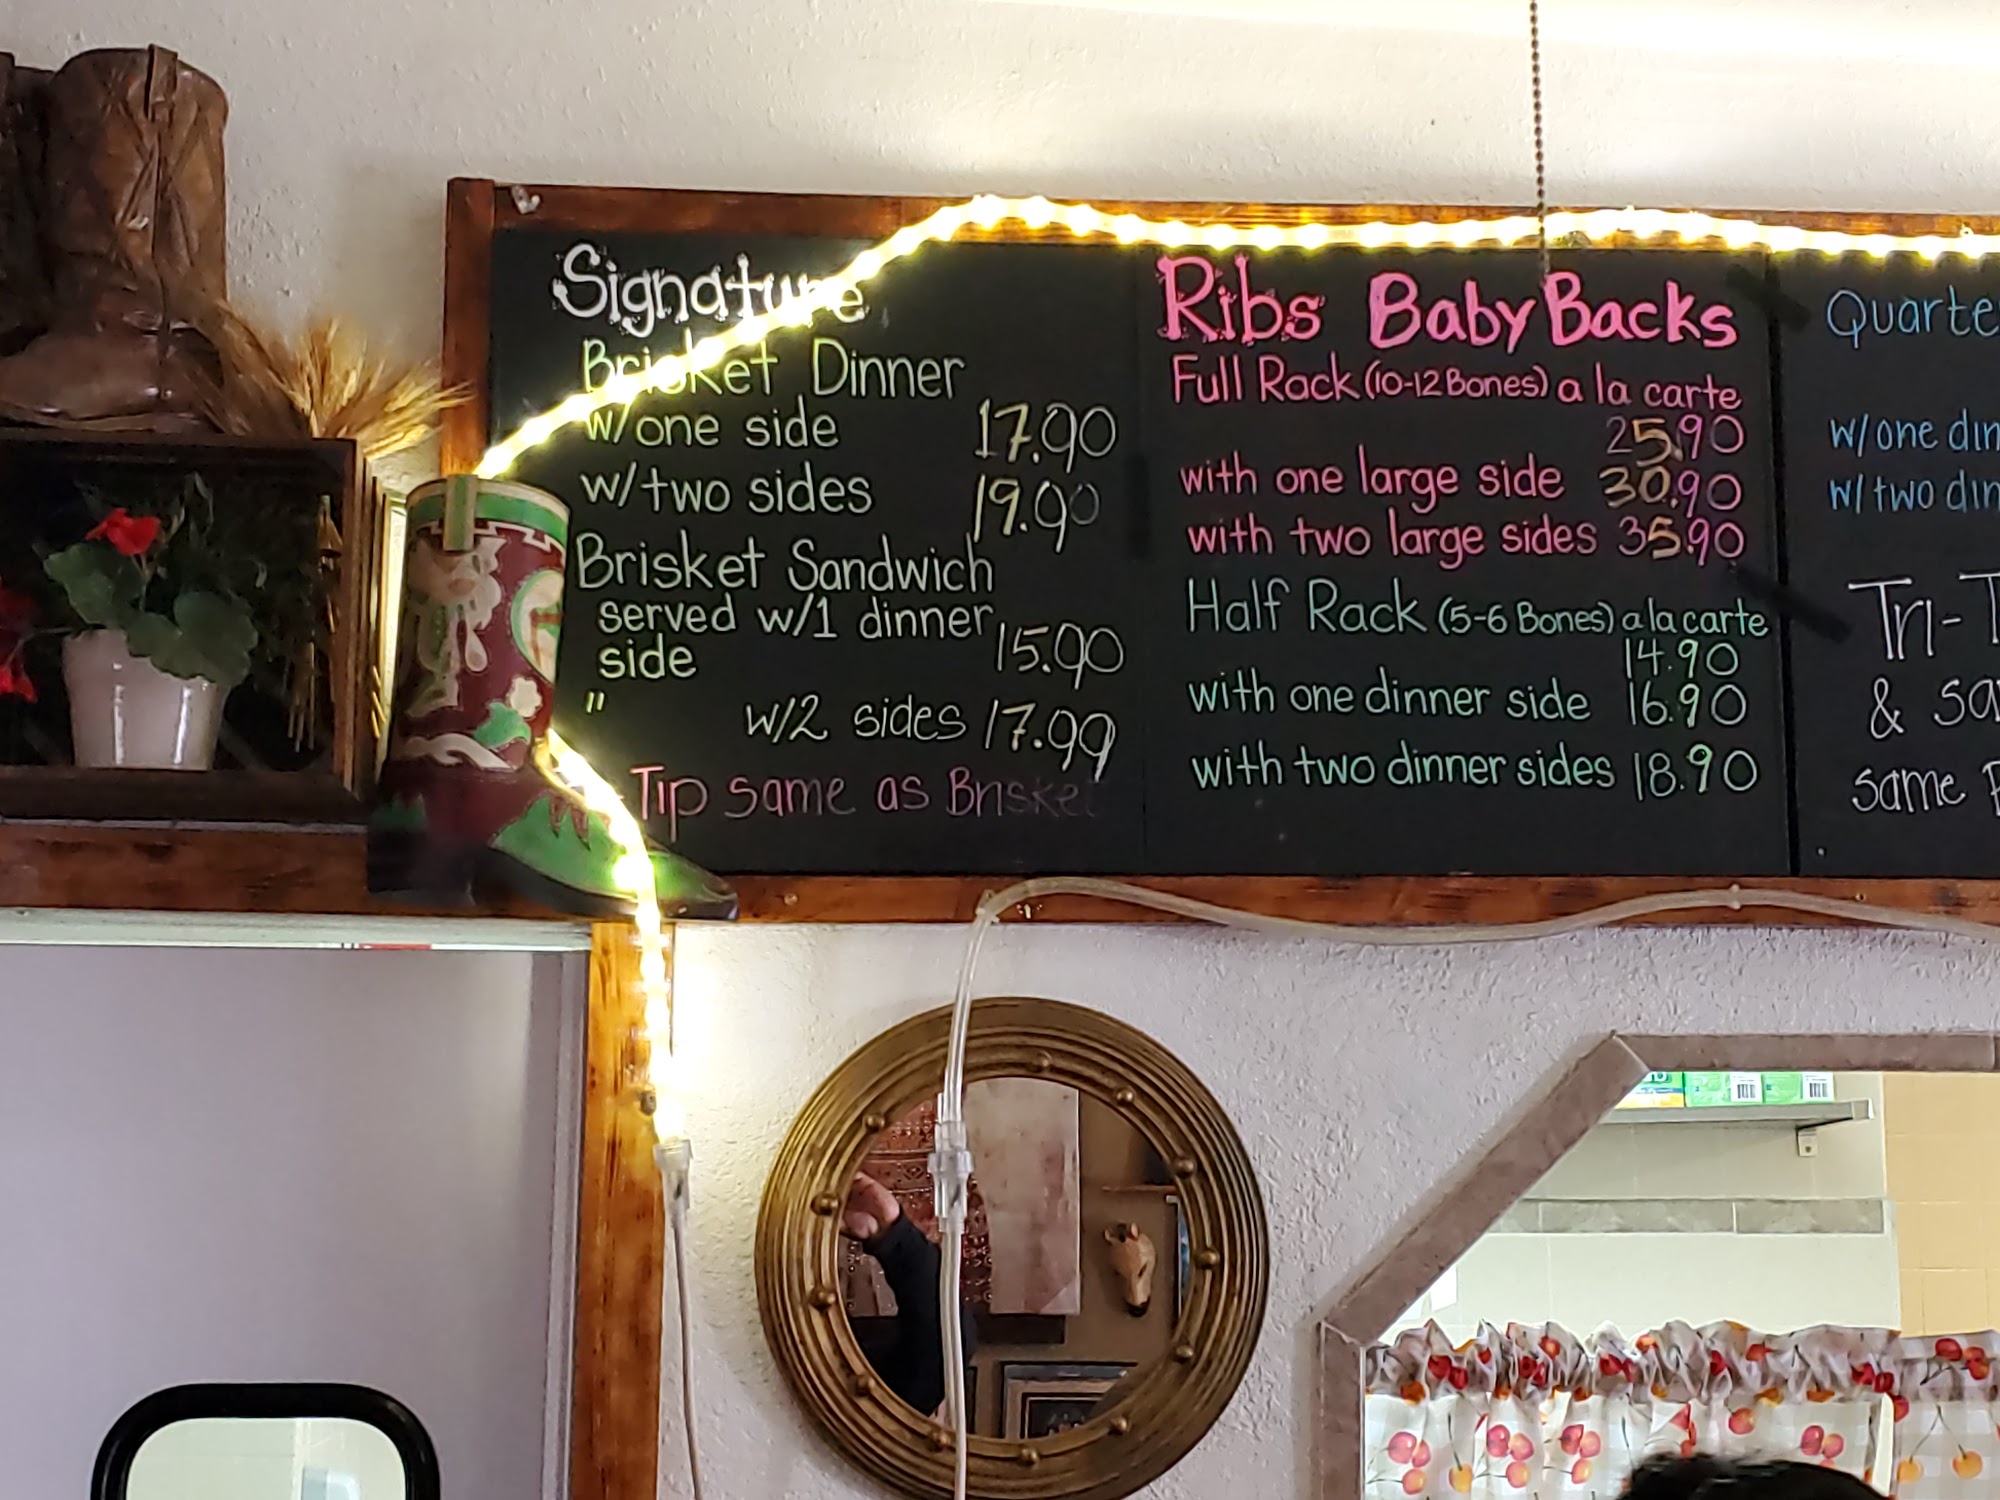 Signature
Brisket Dinner
w/one side 17.90
w/two sides 19.90
Brisket Sandwich
served w/1 dinner
side 15.90
" w/2 sides 17.99
Tip same as Brisket
Ribs Baby Backs
Full Rack (10-12 Bones) a la carte
25.90
with one large side 30.90
with two large sides 35.90
Half Rack (5-6 Bones) a la carte
14.90
with one dinner side 16.90
with two dinner sides 18.90
Quarte
w/one din
w/two din
Tri-T
& sa
same B